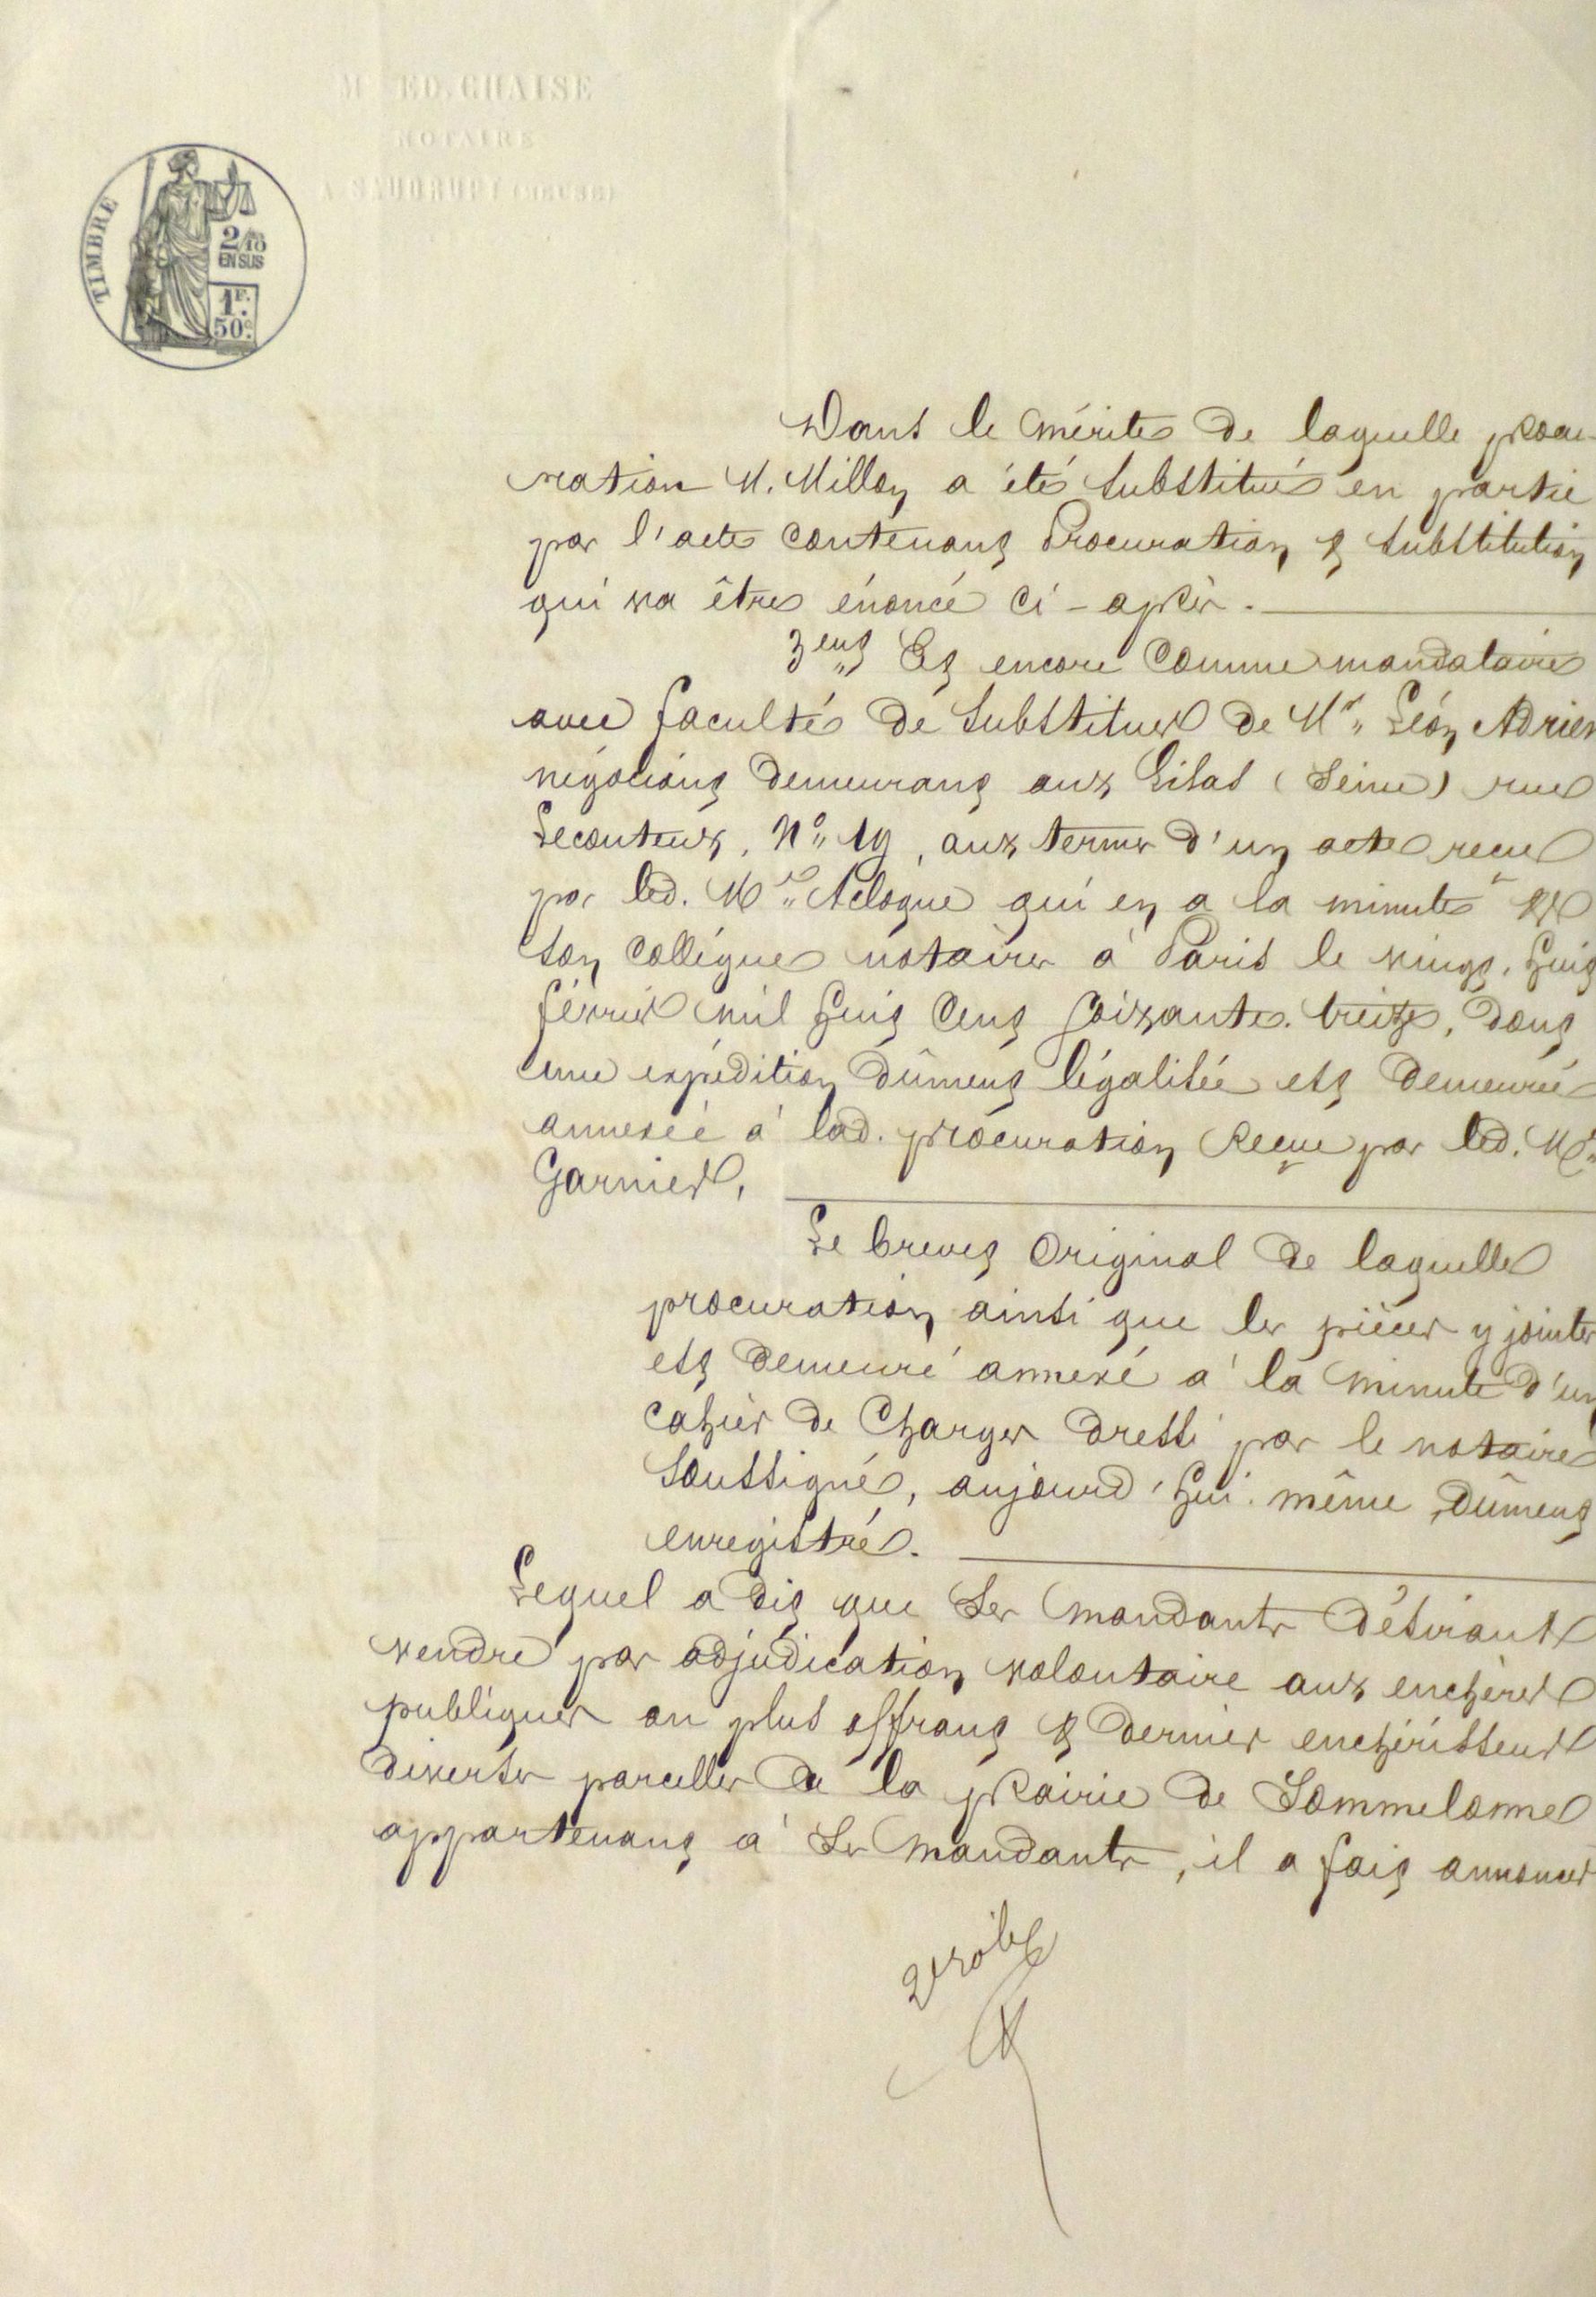 M ED. CHAISE
NOTAIRE
A SAUDRUPT (MEUSE)
TIMBRE
2/10
EN SUS
1F.
50c.
Dans le mérite de laquelle procu-
ration M. Millon a été substitué en partie
par l'acte contenant Procuration & substitution
qui va être énoncé ci-après.
3ent Et encore comme mandataire
avec faculté de substituer de Mr Léon Adrien
négociant demeurant aux Lilas (Seine) rue
Lecouteux, No 19, aux termes d'un acte reçu
par led. Me Aclogue qui en a la minute &
son collègue notaires à Paris le vingt-huit
février mil huit cent soixante-treize, dont
une expédition dûment légalisée est demeurée
annexée à lad. procuration reçue par led. Me
Garnier,
Le brevet original de laquelle
procuration ainsi que les pièces y jointes
est demeuré annexé à la minute d'un
cahier de charges dressé par le notaire
soussigné, aujourd'hui même, dûment
enregistré.
Lequel a dit que ses mandants désirant
vendre par adjudication volontaire aux enchères
publiques au plus offrant & dernier enchérisseur
diverses parcelles de la prairie de Sommelonne
appartenant à ses mandants, il a fait annoncer